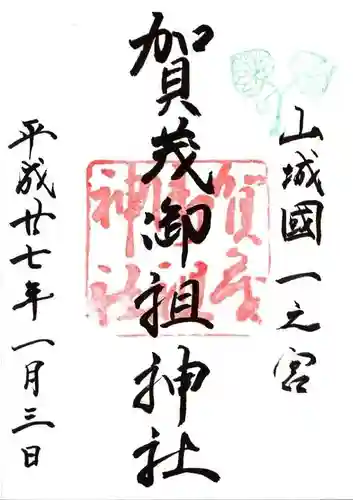 山城國一之宮
賀茂御祖神社
平成廿七年一月三日
賀茂
御祖
神社